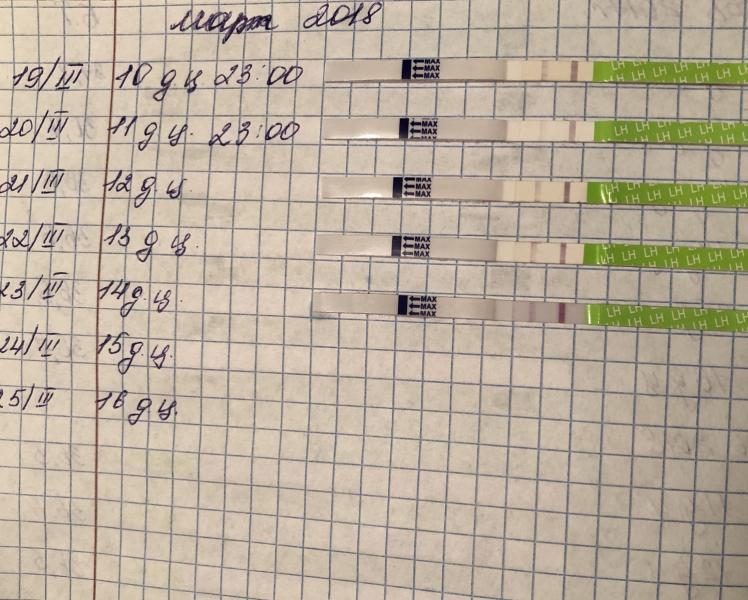 март 2018
19/III 10 д ц 23:00 MAX MAX MAX LH LH LH LH LH LH
20/III 11 д ц. 23:00 MAX MAX MAX LH LH LH LH LH LH
21/III 12 д.ц. MAX MAX MAX LH LH LH LH LH LH
22/III 13 д ц. MAX MAX MAX LH LH LH LH LH LH
23/III 14 д.ц. MAX MAX MAX LH LH LH LH LH LH
24/III 15 д.ц.
25/III 16 д ц.